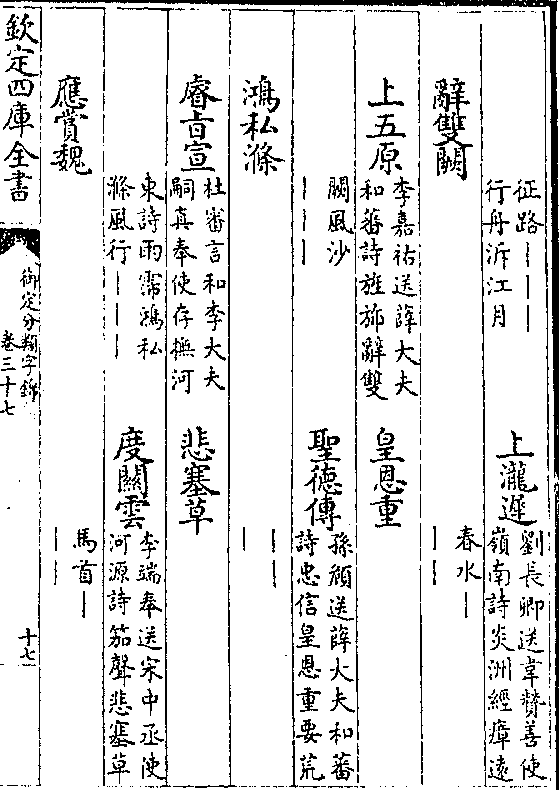 征路｜｜｜｜
行舟泝江月
上瀧遲
劉長卿送韋贊善使
嶺南詩炎洲經瘴遠
辭雙闕
春水｜
｜｜
上五原
李嘉祐送薛大夫
和蕃詩旌斾辭雙
皇恩重
闕風沙
｜｜｜
聖德傳
孫頎送薛大夫和蕃
詩忠信皇恩重要荒
鴻私滌
｜｜
｜
睿旨宣
杜審言和李大夫
嗣真奉使存撫河
悲塞草
東詩雨霈鴻私
滌風行｜｜｜
度關雲
李端奉送宋中丞使
河源詩笳聲悲塞草
應賞魏
馬首｜
｜｜
欽定四庫全書
御定分類字錦
卷三十七
十七